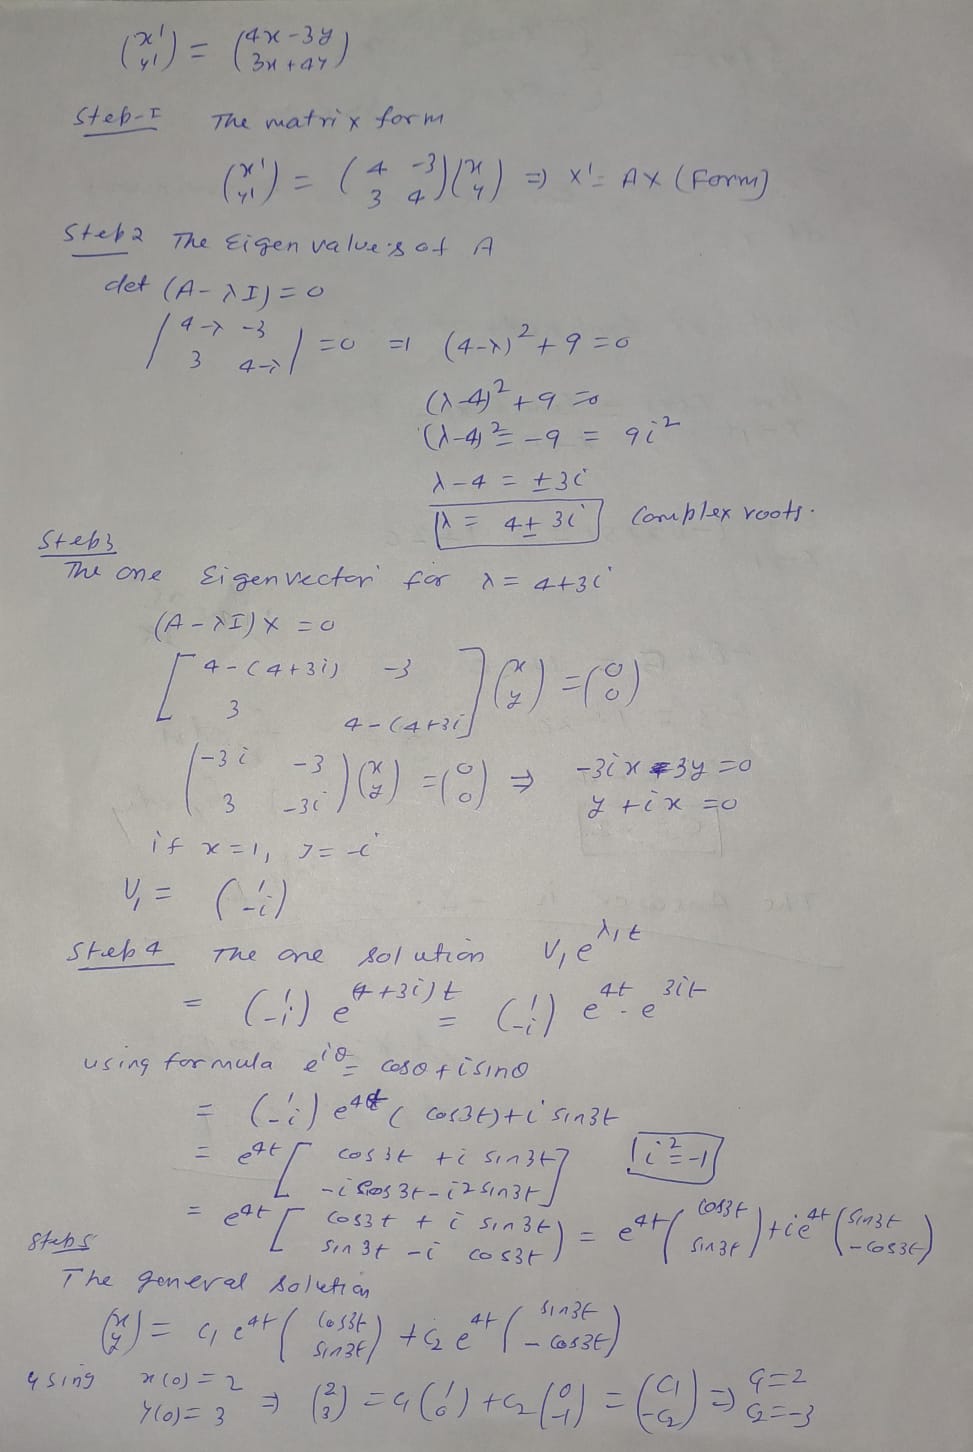 (x' y') = (4x - 3y 3x + 4y)
Step-I The matrix form
(x' y') = (4 -3 3 4)(x y) => X' = AX (Form)
Step 2 The Eigen values of A
det (A - λI) = 0
|4-λ -3 3 4-λ| = 0 => (4-λ)² + 9 = 0
(λ-4)² + 9 = 0
(λ-4)² = -9 = 9i²
λ - 4 = ±3i
λ = 4 ± 3i Complex roots.
Step 3
The one Eigen vector for λ = 4+3i
(A - λI) X = 0
[4-(4+3i) -3 3 4-(4+3i)] (x y) = (0 0)
(-3i -3 3 -3i)(x y) = (0 0) => -3ix - 3y = 0
y + ix = 0
if x = 1, y = -i
V₁ = (1 -i)
Step 4 The one solution V₁ e^λ₁t
= (1 -i) e^(4+3i)t = (1 -i) e^4t . e^3it
using formula e^iθ = cosθ + i sinθ
= (1 -i) e^4t (cos3t) + i sin3t
= e^4t [cos3t + i sin3t -i cos3t - i² sin3t] i² = -1
= e^4t [cos3t + i sin3t sin3t - i cos3t) = e^4t (cos3t sin3t) + i e^4t (sin3t -cos3t)
Step 5
The general solution
(x y) = c₁ e^4t (cos3t sin3t) + c₂ e^4t (sin3t -cos3t)
using x(0) = 2 y(0) = 3 => (2 3) = c₁ (1 0) + c₂ (0 -1) = (c₁ -c₂) => c₁ = 2 c₂ = -3